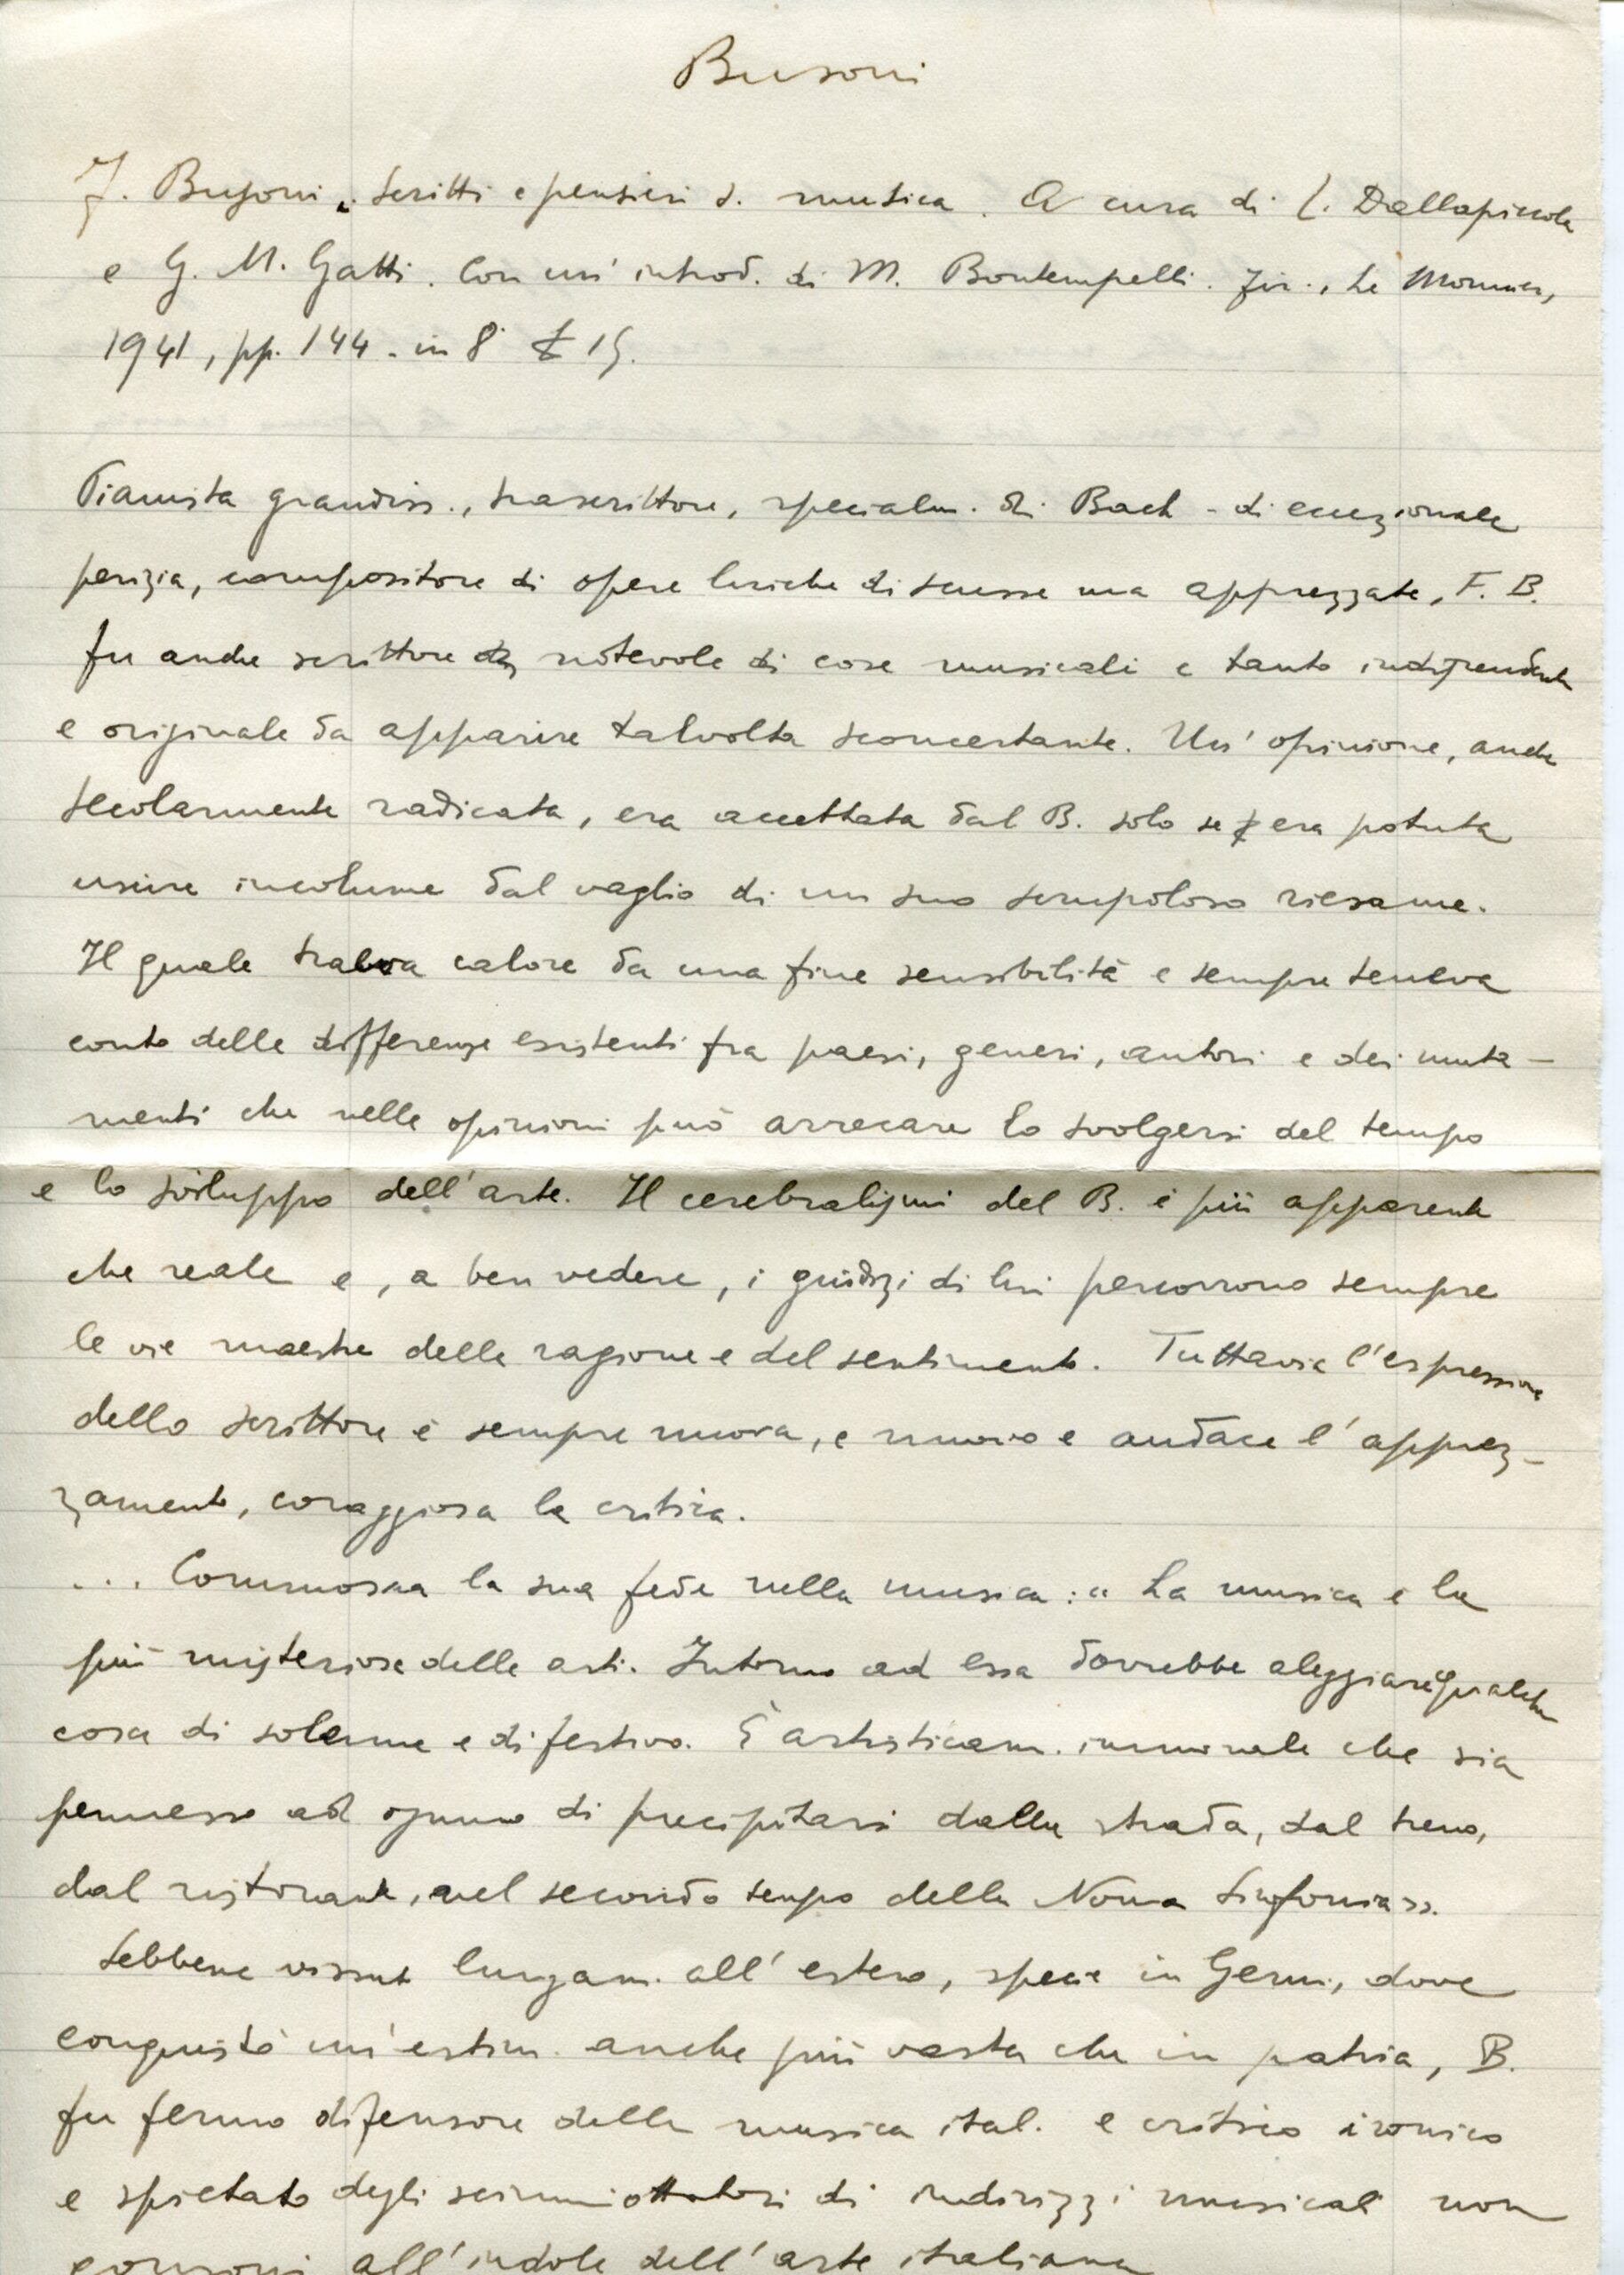 Busoni
F. Busoni. Scritti e pensieri s. musica. A cura di L. Dallapiccola
e G. M. Gatti. Con un' introd. di M. Bontempelli. Fir., Le Monnier,
1941, pp. 144 - in 8° £ 15.
Pianista grandiss., trascrittore, specialm. di Bach - di eccezionale
perizia, compositore di opere liriche discusse ma apprezzate, F. B.
fu anche scrittore notevole di cose musicali e tanto indipendente
e originale da apparire talvolta sconcertante. Un' opinione, anche
secolarmente radicata, era accettata dal B. solo se era potuta
uscire incolume dal vaglio di un suo scrupoloso riesame.
Il quale traeva calore da una fine sensibilità e sempre teneva
conto delle differenze esistenti fra paesi, generi, autori e dei muta-
menti che nelle opinioni può arrecare lo svolgersi del tempo
e lo sviluppo dell'arte. Il cerebralismi del B. è più apparente
che reale e, a ben vedere, i giudizi di lui percorrono sempre
le vie maestre della ragione e del sentimento. Tuttavia l'espressione
dello scrittore è sempre nuova, e nuovo e audace l'apprez-
zamento, coraggiosa la critica.
... Commossa la sua fede nella musica: « La musica è la
più misteriosa delle arti. Intorno ad essa dovrebbe aleggiare qualche
cosa di solenne e di festivo. È artisticam. immorale che sia
permesso ad ognuno di precipitarsi dalla strada, dal treno,
dal ristorante, nel secondo tempo della Nona Sinfonia ».
Sebbene vissuto lungam. all'estero, specie in Germ., dove
conquistò un'estim. anche più vasta che in patria, B.
fu fermo difensore della musica ital. e critico ironico
e spietato degli scimmiottatori di indirizzi musicali non
consoni all'indole dell'arte italiana